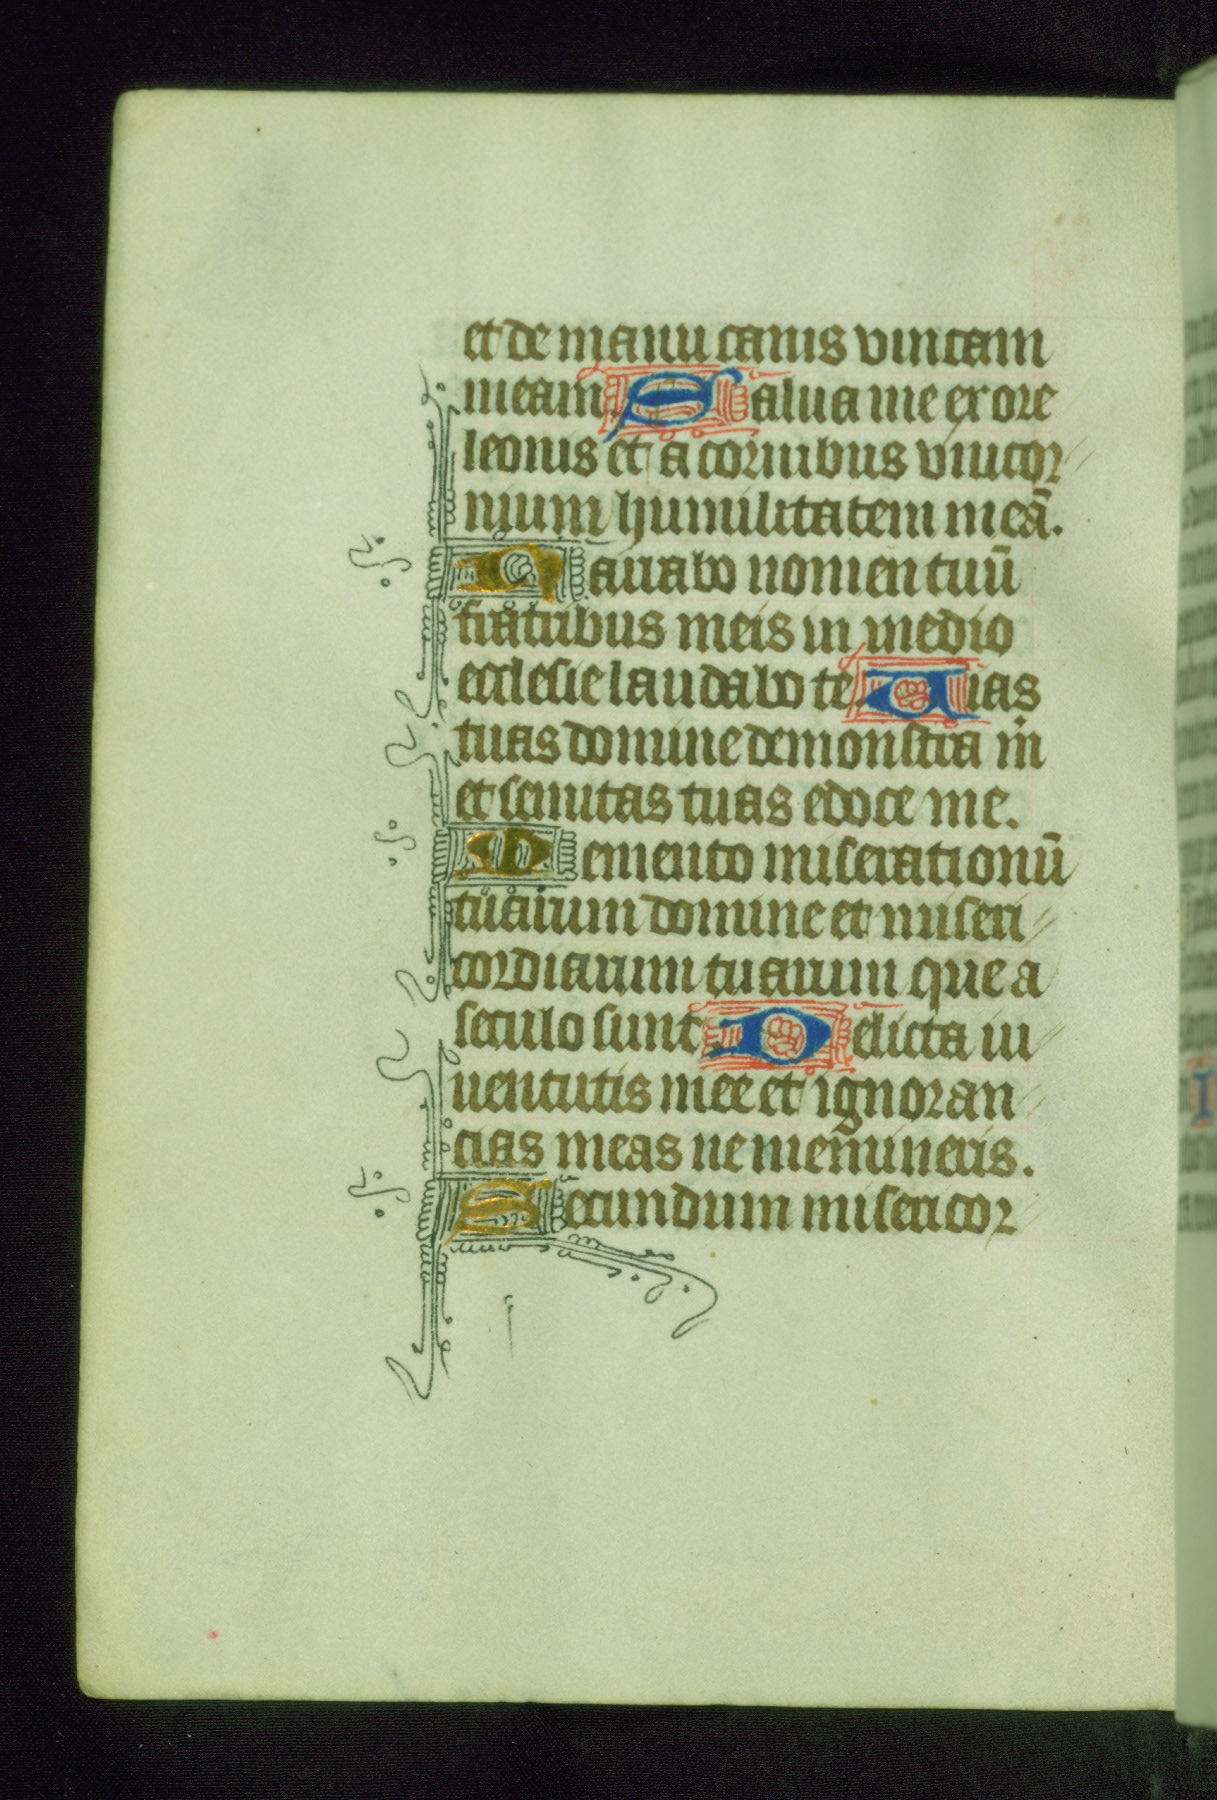 et de manu canis vnicam
meam. Salua me ex ore
leonis et a cornibus vnicor
nium humilitatem meā.
Narrabo nomen tuū
fratribus meis in medio
ecclesie laudabo te. Uias
tuas domine demonstra m̄
et semitas tuas edoce me.
Memento miserationū
tuarum domine et miseri
cordiarum tuarum que a
seculo sunt. Delicta iu
uentutis mee et ignoran
cias meas ne memineris.
Secundum misericor